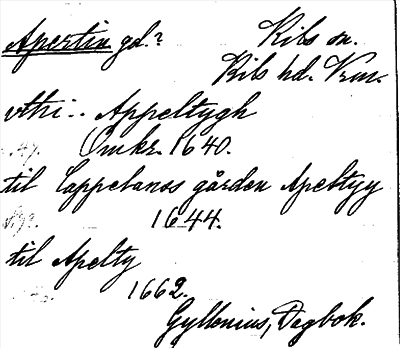 Apertin gd.? Kils sn.
Kils hd. Vrm.
vthi.. Appeltygh
Omkr. 1640.
til Cappelanss gården Apeltyy
1644.
til Apelty
1662.
Gyllenius, Dagbok.